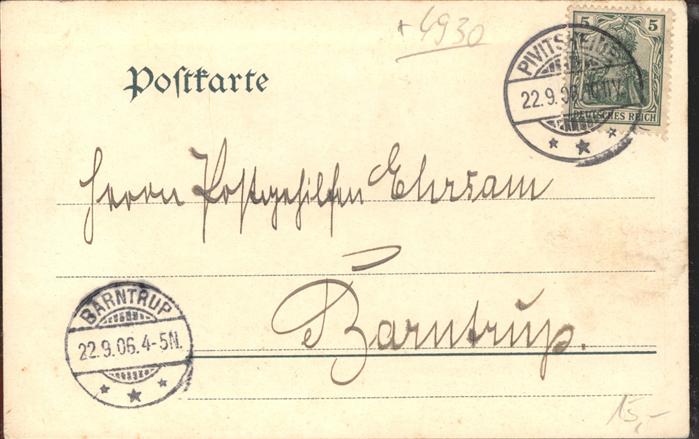 4930
5 5
PIVITSHEIDE
22.9.06.
DEUTSCHES REICH
Postkarte
Herrn Postgehilfen Ehrsam
Barntrup.
BARNTRUP
22.9.06.4-5N.
15,-